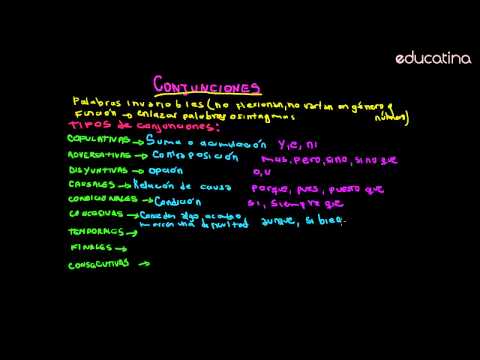 educatina
CONJUNCIONES
Palabras invariables (no flexionan, no varían en género y número)
Función → enlazar palabras o sintagmas
TIPOS de conjunciones:
COPULATIVAS → Suma o acumulación y, e, ni
ADVERSATIVAS → Contraposición mas, pero, sino, sino que
DISYUNTIVAS → opción o, u
CAUSALES → Relación de causa porque, pues, puesto que
CONDICIONALES → Condición si, siempre que
CONCESIVAS → Conceden algo
marcan una dificultad aunque, si bien
TEMPORALES →
FINALES →
CONSECUTIVAS →